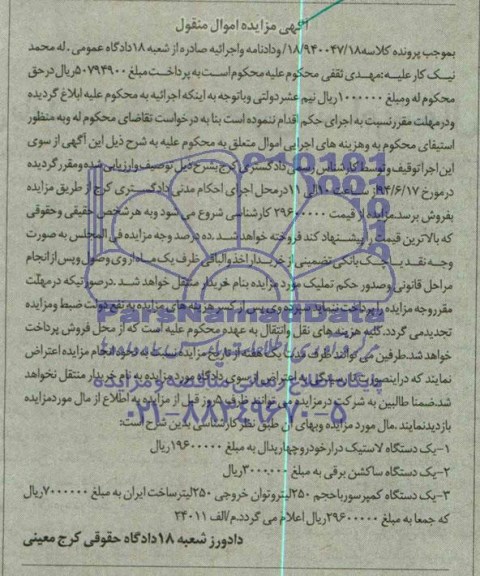 آگهی مزایده اموال منقول
بموجب پرونده کلاسه ۱۸/۹۴۰۰۴۷/۱۸ ودادنامه واجرائیه صادره از شعبه ۱۸دادگاه عمومی . له محمد
نیک کار علیه : مهدی ثقفی محکوم علیه محکوم است به پرداخت مبلغ ۵۰۷۹۴۹۰۰ریال درحق
محکوم له ومبلغ ۱۰۰۰۰۰۰ریال نیم عشردولتی وباتوجه به اینکه اجرائیه به محکوم علیه ابلاغ گردیده
ودرمهلت مقررنسبت به اجرای حکم اقدام ننموده است بنا به درخواست تقاضای محکوم له وبه منظور
استیفای محکوم به وهزینه های اجرایی اموال متعلق به محکوم علیه به شرح ذیل این آگهی از سوی
این اجراتوقیف وتوسط کارشناس رسمی دادگستری کرج بشرح ذیل توصیف وارزیابی شده ومقررگردیده
درمورخ ۹۴/۶/۱۷ از ساعت ۱۰الی ۱۱درمحل اجرای احکام مدنی دادگستری کرج از طریق مزایده
بفروش برسد.مزایده از قیمت ۲۹۶۰۰۰۰۰ کارشناسی شروع می شود وبه هرشخص حقیقی وحقوقی
که بالاترین قیمت را پیشنهاد کند فروخته خواهد شد .ده درصد وجه مزایده فی المجلس به صورت
وجه نقد یا چک بانکی تضمینی از خریدار اخذ والباقی ظرف یک ماه ازوی وصول وپس از انجام
مراحل قانونی وصدور حکم تملیک مورد مزایده بنام خریدار منتقل خواهد شد .درصورتیکه درمهلت
مقرروجه مزایده را پرداخت ننماید سپرده وی پس از کسر هزینه های مزایده به نفع دولت ضبط ومزایده
تجدیدمی گردد.کلیه هزینه های نقل وانتقال به عهده محکوم علیه است که از محل فروش پرداخت
خواهد شد.طرفین می توانند ظرف مدت یک هفته از تاریخ مزایده نسبت به نحوه انجام مزایده اعتراض
نمایند که دراینصورت
شد.ضمنا طالبین به شرکت درمزایده می توانند ظرف ۵روز قبل از مزایده به اطلاع از مال موردمزایده
بازدیدنمایند .مال مورد مزایده وبهای آن طبق نظر کارشناسی بدین شرح است:
۱-یک دستگاه لاستیک درارخودروچهارپدال به مبلغ ۱۹۶۰۰۰۰۰ریال
۲-یک دستگاه ساکشن برقی به مبلغ ۳۰۰۰۰۰۰ریال
۳-یک دستگاه کمپرسورباحجم ۲۵۰لیتروتوان خروجی ۲۵۰لیترساخت ایران به مبلغ ۷۰۰۰۰۰۰ریال
که جمعا به مبلغ ۲۹۶۰۰۰۰۰ریال اعلام می گردد.م/الف ۲۴۰۱۱
دادورز شعبه ۱۸دادگاه حقوقی کرج معینی
ParsNamadData
پایگاه اطلاع رسانی مناقصه و مزایده
۰۲۱-۸۸۳۴۹۶۷۰-۵